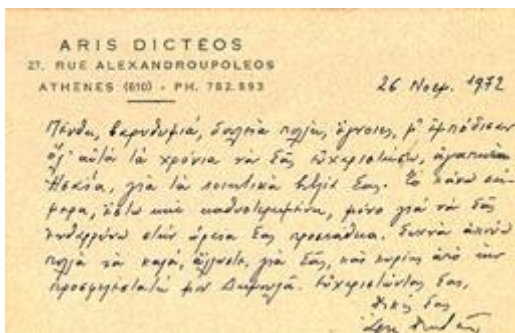 ARIS DICTÉOS
27, RUE ALEXANDROUPOLEOS
ATHENES (610) - PH. 782.893
26 Νοεμ. 1972
Πένθη, βαρυθυμιά, δουλειὰ πολλή, ἔγνοιες, μ' ἐμπόδισαν
ὅλ' αὐτὰ τὰ χρόνια νὰ σᾶς εὐχαριστήσω, ἀγαπητὲ
γιὰ τὰ ποιητικὰ βιβλία σας. Τὸ κάνω σή-
μερα, ἔστω καὶ καθυστερημένα, μόνο γιὰ νὰ σᾶς
ἐνθαρρύνω στὴν ὡραία σας προσπάθεια. Συχνὰ ἀκούω
πολλὰ καὶ καλά, ἄλλωστε, γιὰ σᾶς, καὶ κυρίως ἀπὸ τὴν
προσφιλεστάτη μου Εὐχαριστώντας σας,
δικός σας